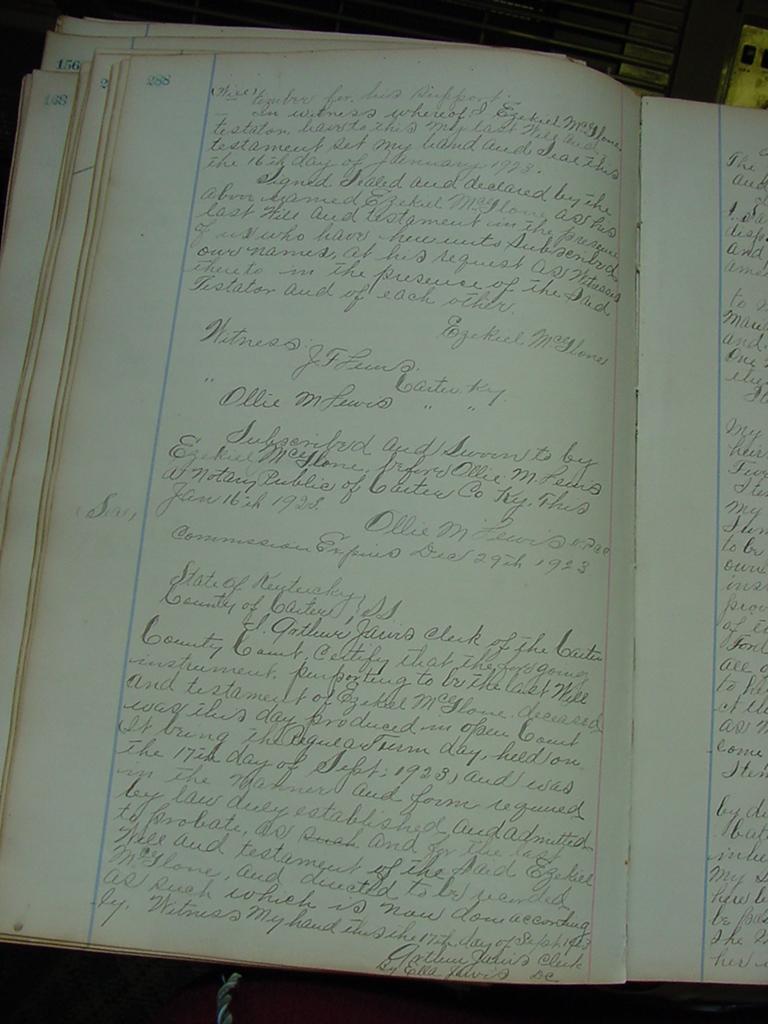 156
168
2
288
(Will) timber for his support.
In witness whereof I Ezekiel McGlone
testator, have to this my last Will and
testament set my hand and Seal this
the 16th day of January 1923.
Signed Sealed and declared by the
above named Ezekiel McGlone as his
last Will and testament in the presence
of us who have hereunto Subscribed
our names, at his request as Witnesses
thereto in the presence of the Said
Testator and of each other.
Ezekiel McGlone
Witness: J F Lewis
Carter Ky.
" Ollie M Lewis " "
Subscribed and Sworn to by
Ezekiel McGlone, before Ollie M. Lewis
a Notary Public of Carter Co Ky. This
Jan 16th 1923.
Ollie M Lewis
Commission Expires Dec 29th 1923
State of Kentucky
County of Carter, SS
I. Arthur Jarvis Clerk of the Carter
County Court, Certify that the foregoing
instrument, purporting to be the last Will
and testament of Ezekiel McGlone, deceased
was this day produced in open Court
It being the Regular Term day, held on
the 17th day of Sept. 1923, and was
in the Manner and form required
by law duly established and admitted
to probate, as such and for the last
Will and testament of the Said Ezekiel
McGlone, and directed to be recorded
as such which is now done according
ly. Witness My hand this the 17th day of Sept 1923
Arthur Jarvis Clerk
By Ella Jarvis DC
The
and
and
to
and
One
My
heir
Item
my
to be
of
Ford
all
to
as
come
Item
by
My
here
be
the
her